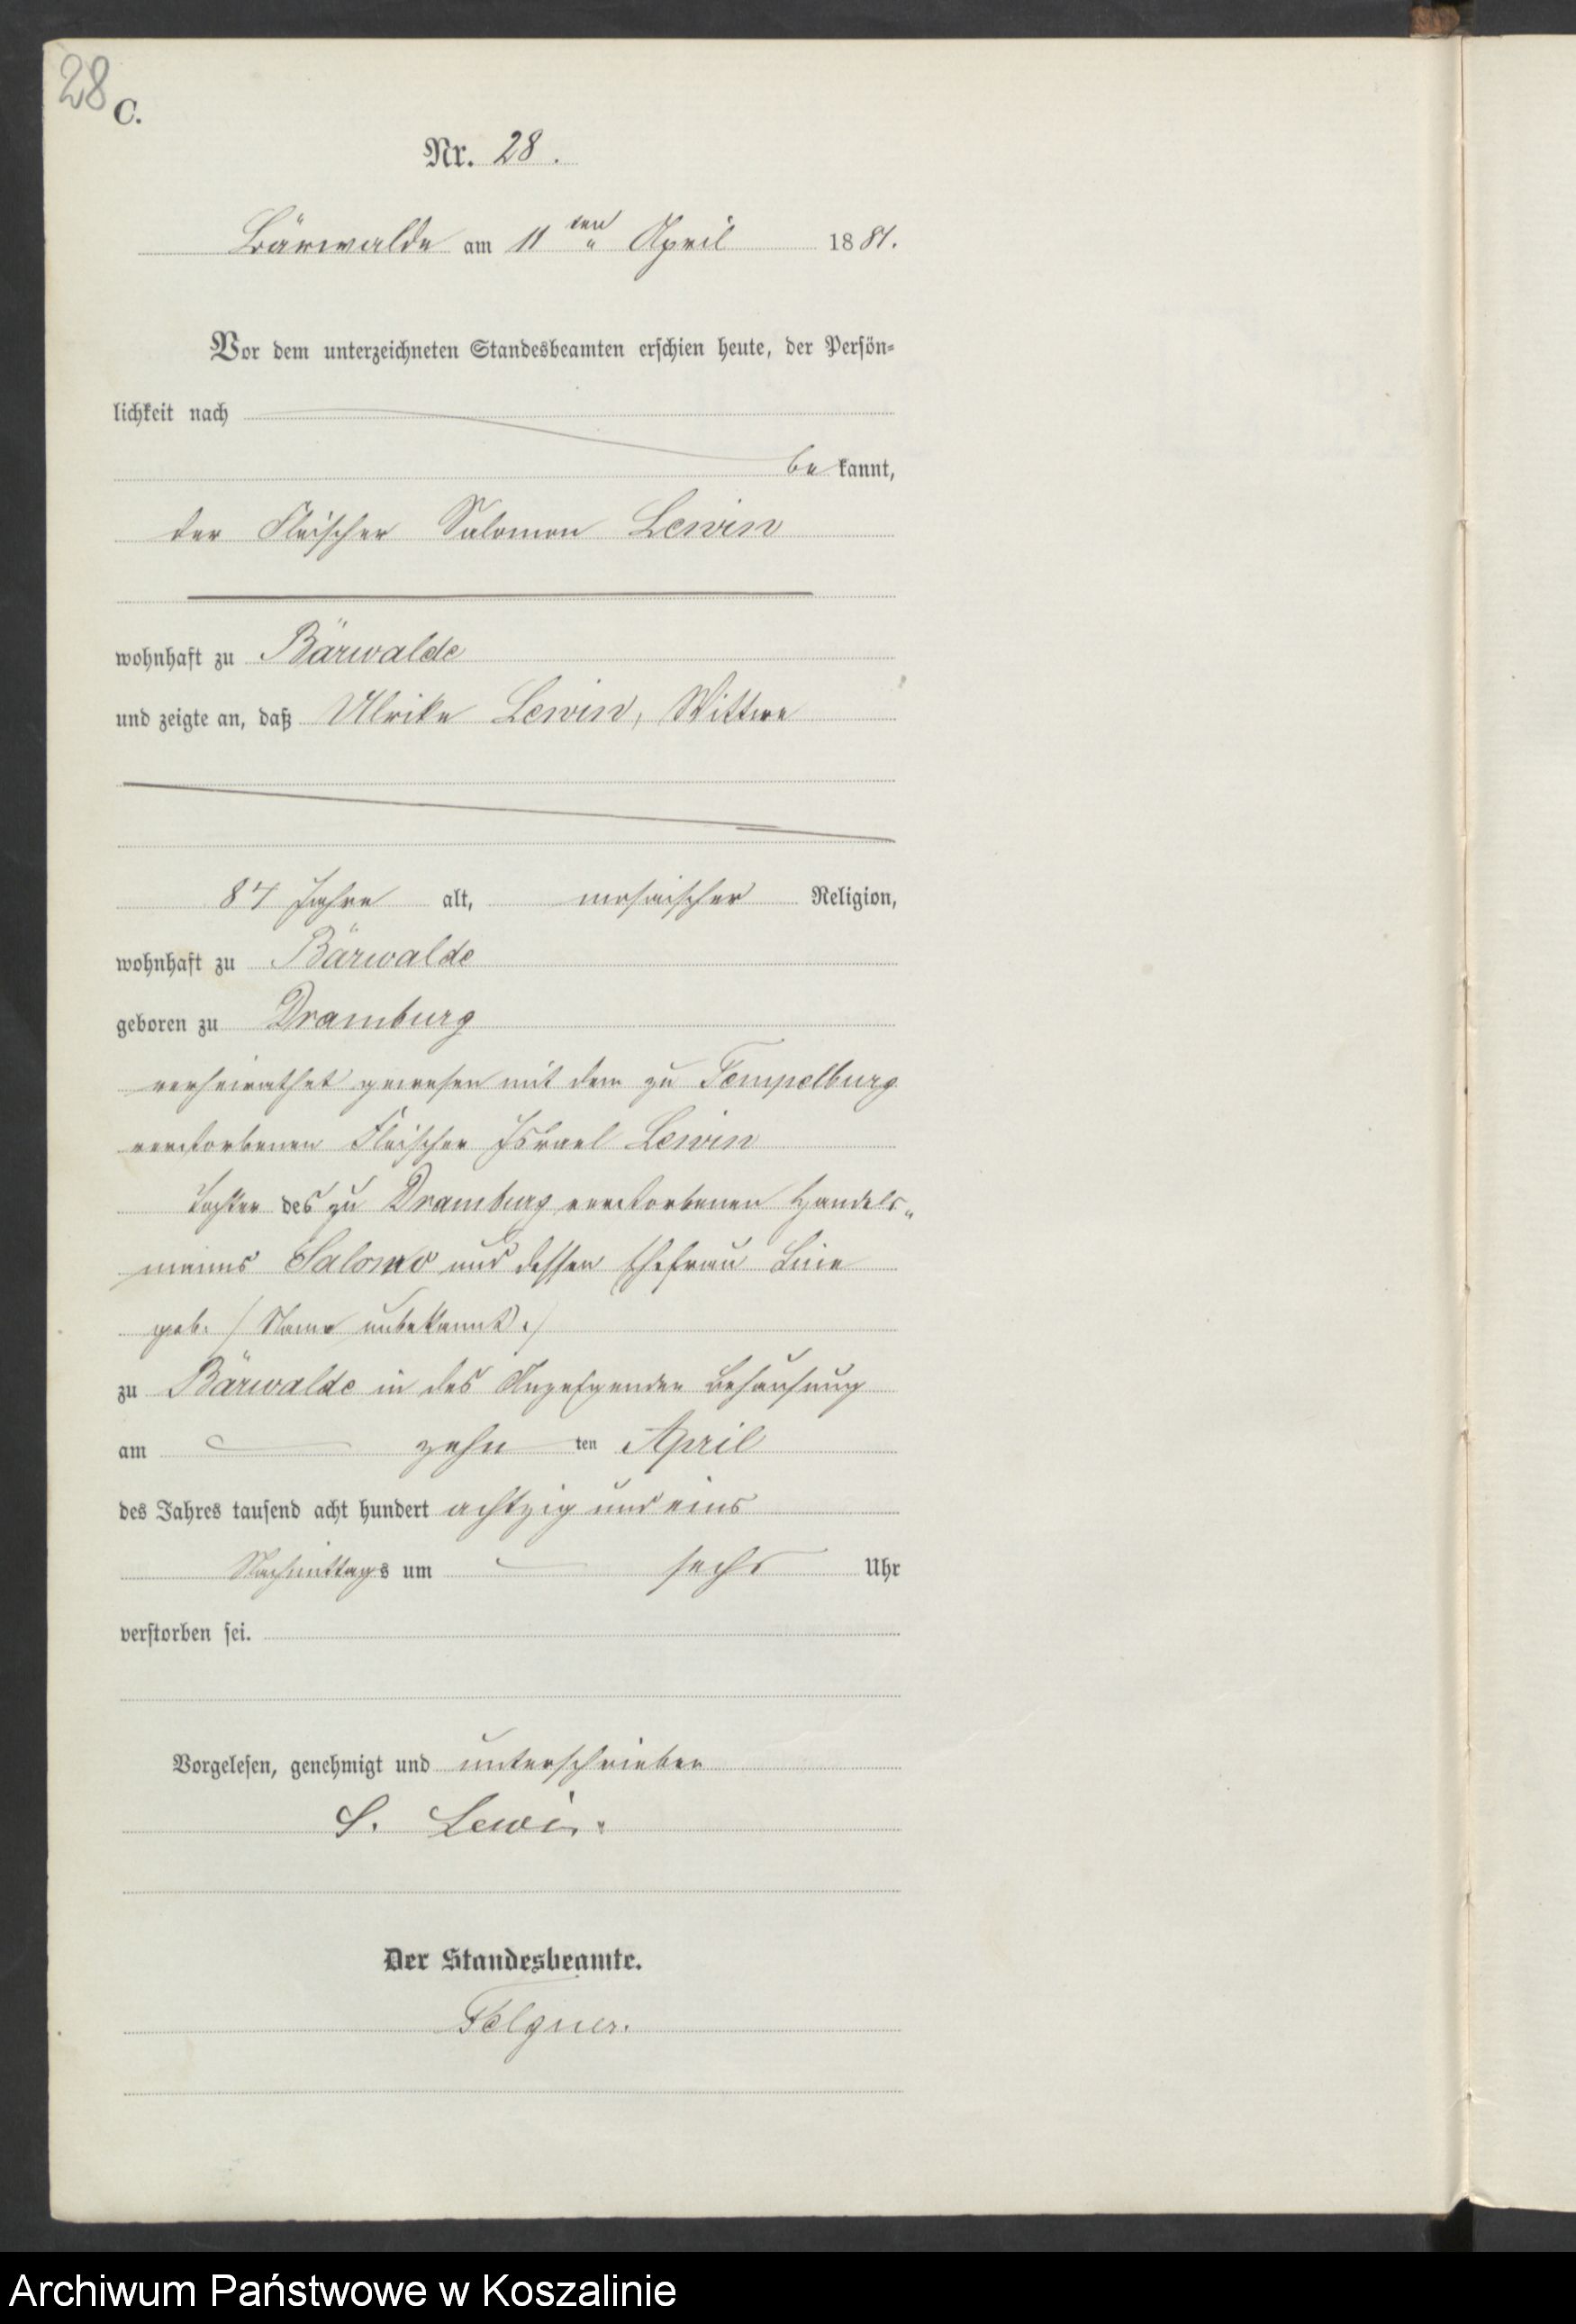 28
C.
Nr. 28.
Bärwalde am 11ten April 1881.
Vor dem unterzeichneten Standesbeamten erschien heute, der Persön-
lichkeit nach
be kannt,
der Fleischer Salomon Lewin
wohnhaft zu Bärwalde
und zeigte an, daß Ulrike Lewin, Wittwe
Jahre alt, mosaischer Religion,
wohnhaft zu Bärwalde
geboren zu Dramburg
verheirathet gewesen mit dem zu Tempelburg
verstorbenen Fleischer Israel Lewin
Tochter des zu Dramburg verstorbenen Handels-
manns Salomo und dessen Ehefrau
geb. /Name unbekannt./
zu Bärwalde in des Anzeigenden Behausung
am zehn ten April
des Jahres tausend acht hundert achtzig und eins
Nachmittags um sechs Uhr
verstorben sei.
Vorgelesen, genehmigt und unterschrieben
S. Lewin
Der Standesbeamte.
Felgner.
Archiwum Państwowe w Koszalinie